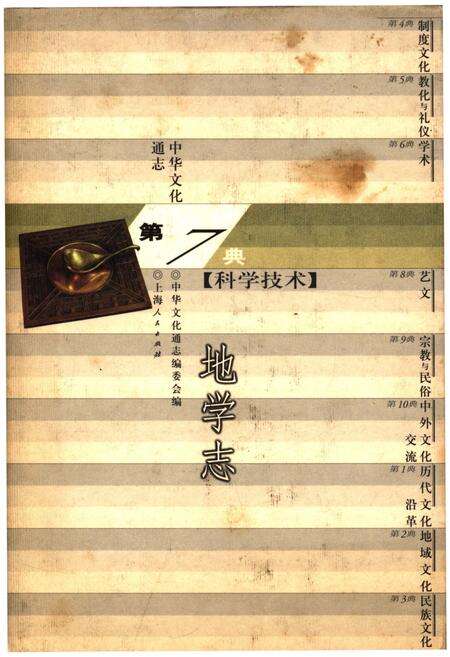 中华文化
通志
第7典
【科学技术】
◎中华文化通志编委会编
◎上海人民出版社
地学志
第4典 制度文化
第5典 教化与礼仪
第6典 学术
第8典 艺文
第9典 宗教与民俗
第10典 中外文化
交流
第1典 历代文化
沿革
第2典 地域文化
第3典 民族文化